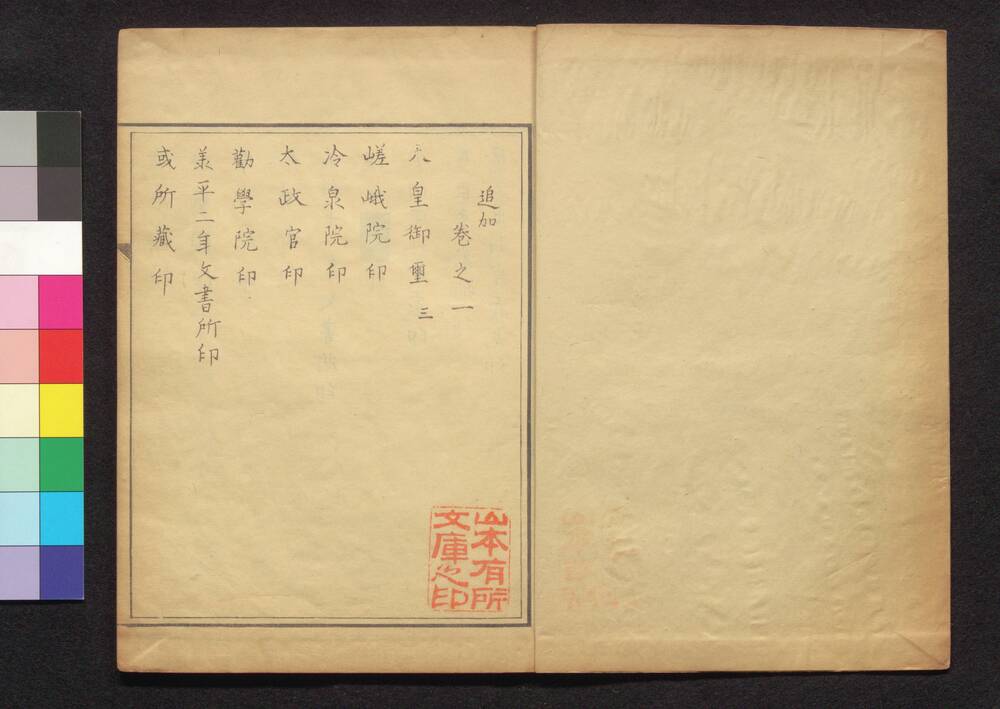 追加
卷之一
人皇御璽 三
嵯峨院印
冷泉院印
太政官印
勸學院印
羕平二年文書所印
或所藏印
山本有所
文庫之印